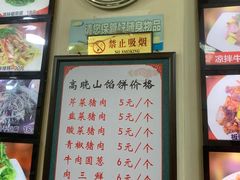 请您保管好随身物品
禁止吸烟
NO SMOKING
高晓山馅饼价格
芹菜猪肉 5元/个
韭菜猪肉 5元/个
酸菜猪肉 5元/个
青椒猪肉 5元/个
牛肉圆葱 6元/个
肉三鲜 6元/个
凉拌牛